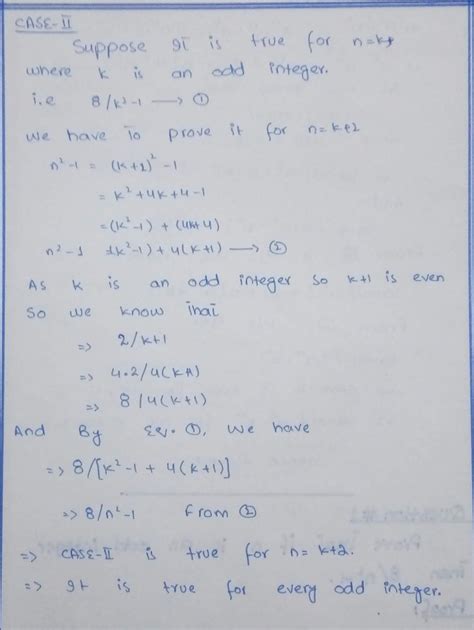 CASE-II
Suppose It is true for n=k,
where k is an odd integer.
i.e 8/k²-1 → ①
We have to prove it for n=k+2
n²-1 = (k+2)²-1
= k²+4k+4-1
= (k²-1) + (4k+4)
n²-1 = (k²-1) + 4(k+1) → ②
As k is an odd integer so k+1 is even
So we know that
=> 2/k+1
=> 4.2/4(k+1)
=> 8/4(k+1)
And By Eq. ①, We have
=> 8/[k²-1 + 4(k+1)]
=> 8/n²-1 From ②
=> CASE-II is true for n= k+2.
=> It is true for every odd integer.